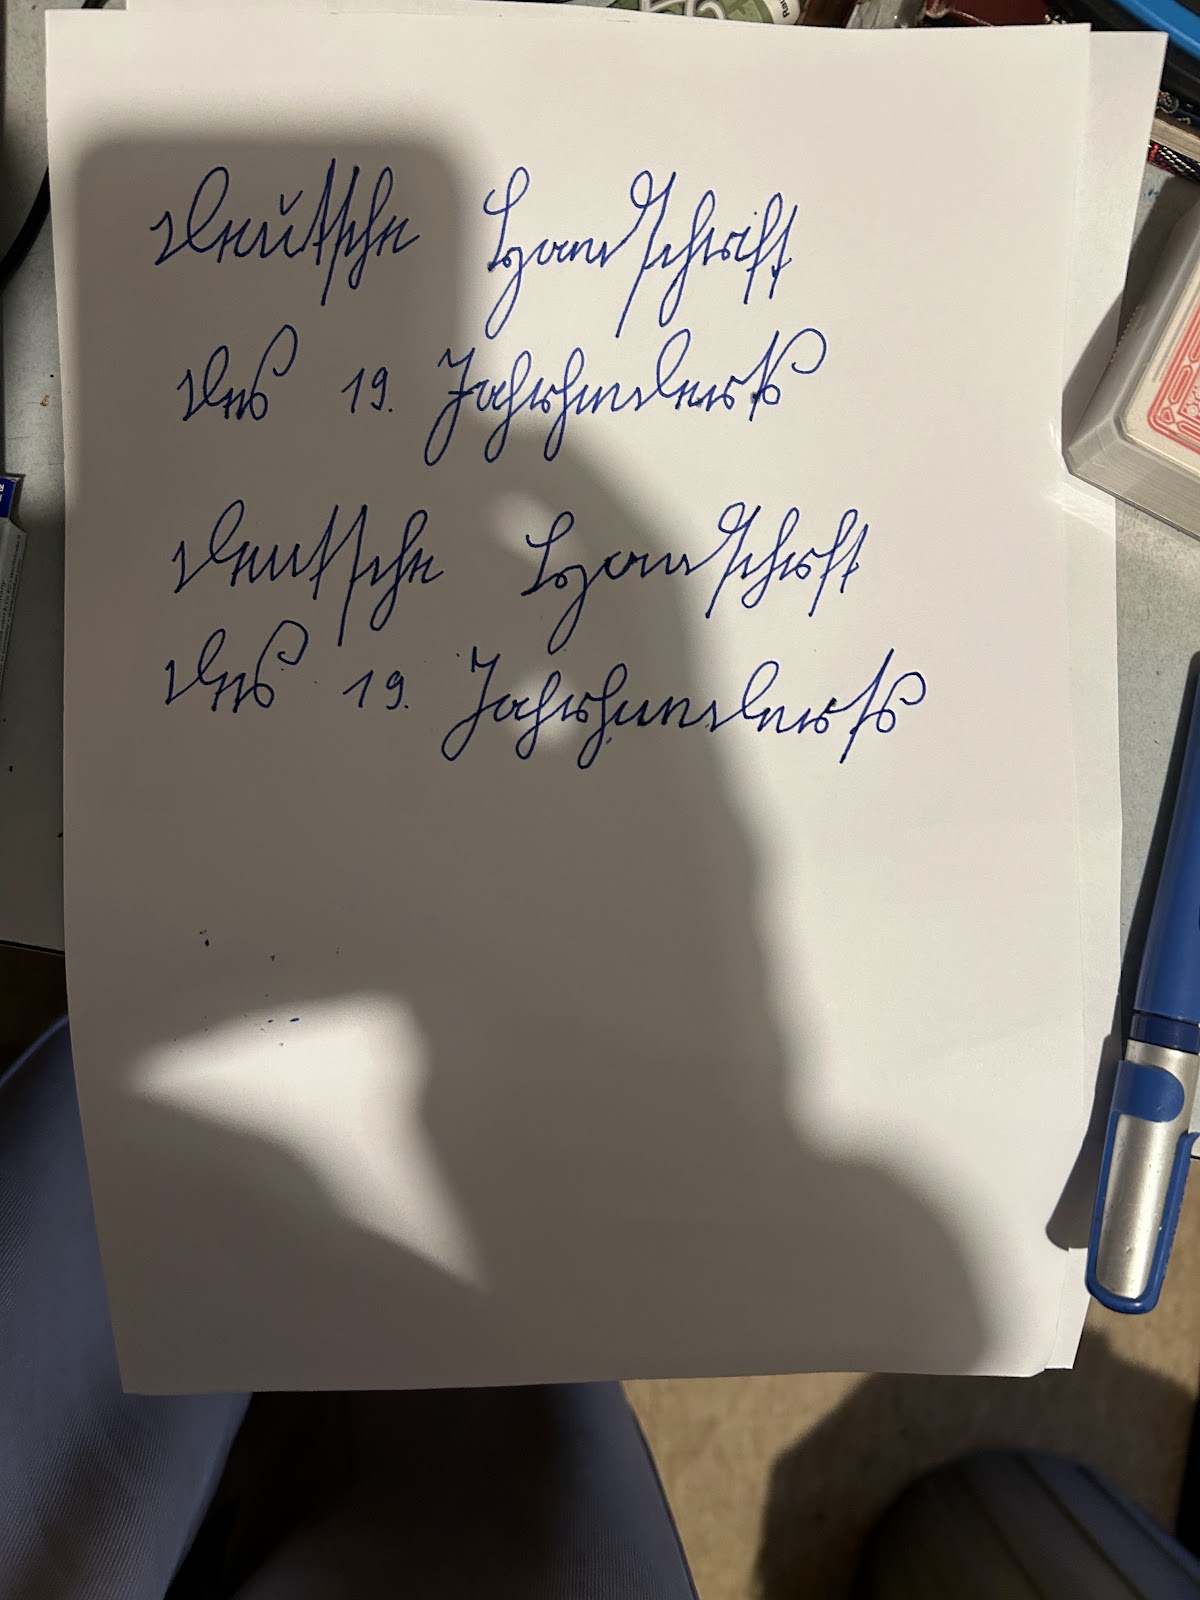 Deutsche Handschrift
des 19. Jahrhunderts
Deutsche Handschrift
des 19. Jahrhunderts